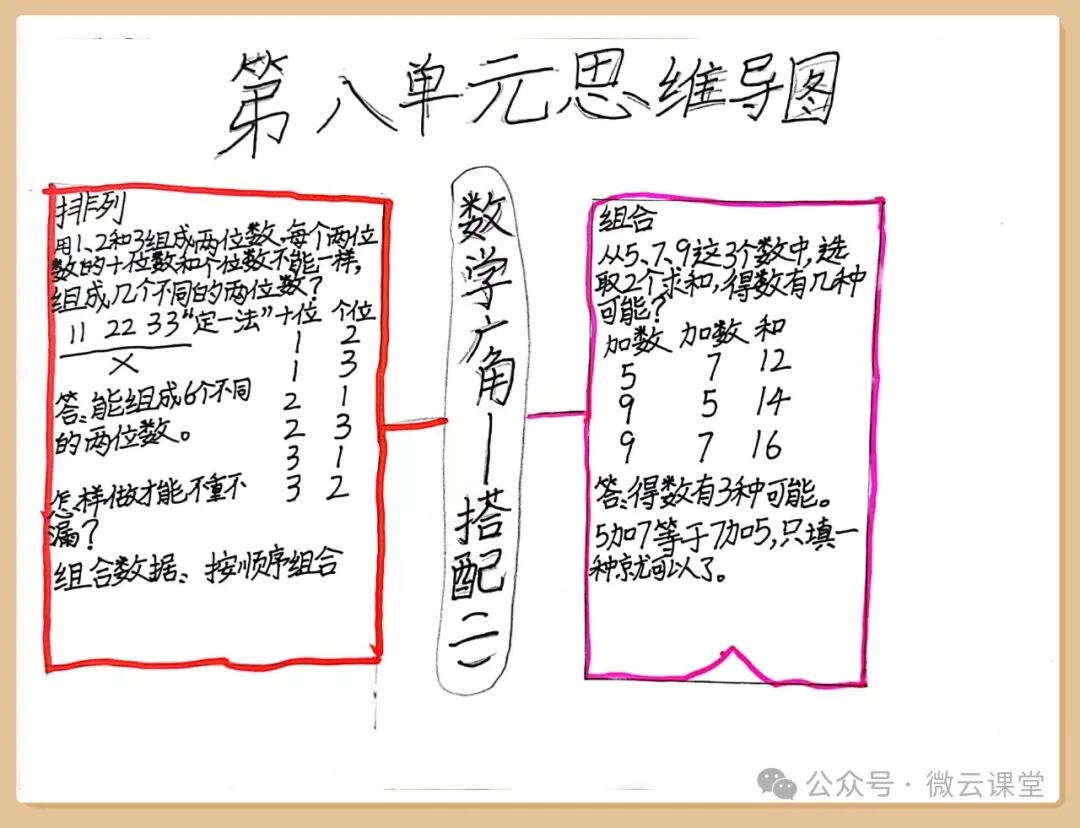 第八单元思维导图
排列
用1、2和3组成两位数,每个两位
数的十位数和个位数不能一样,
组成几个不同的两位数?
11 22 33 “定一法” 十位 个位
×
1 2
1 3
2 1
2 3
3 1
3 2
答:能组成6个不同
的两位数。
怎样做才能不重不
漏?
组合数据、按顺序组合
数学广角—搭配(二)
组合
从5、7、9这3个数中,选
取2个求和,得数有几种
可能?
加数 加数 和
5 7 12
9 5 14
9 7 16
答:得数有3种可能。
5加7等于7加5,只填一
种就可以了。
公众号·微云课堂